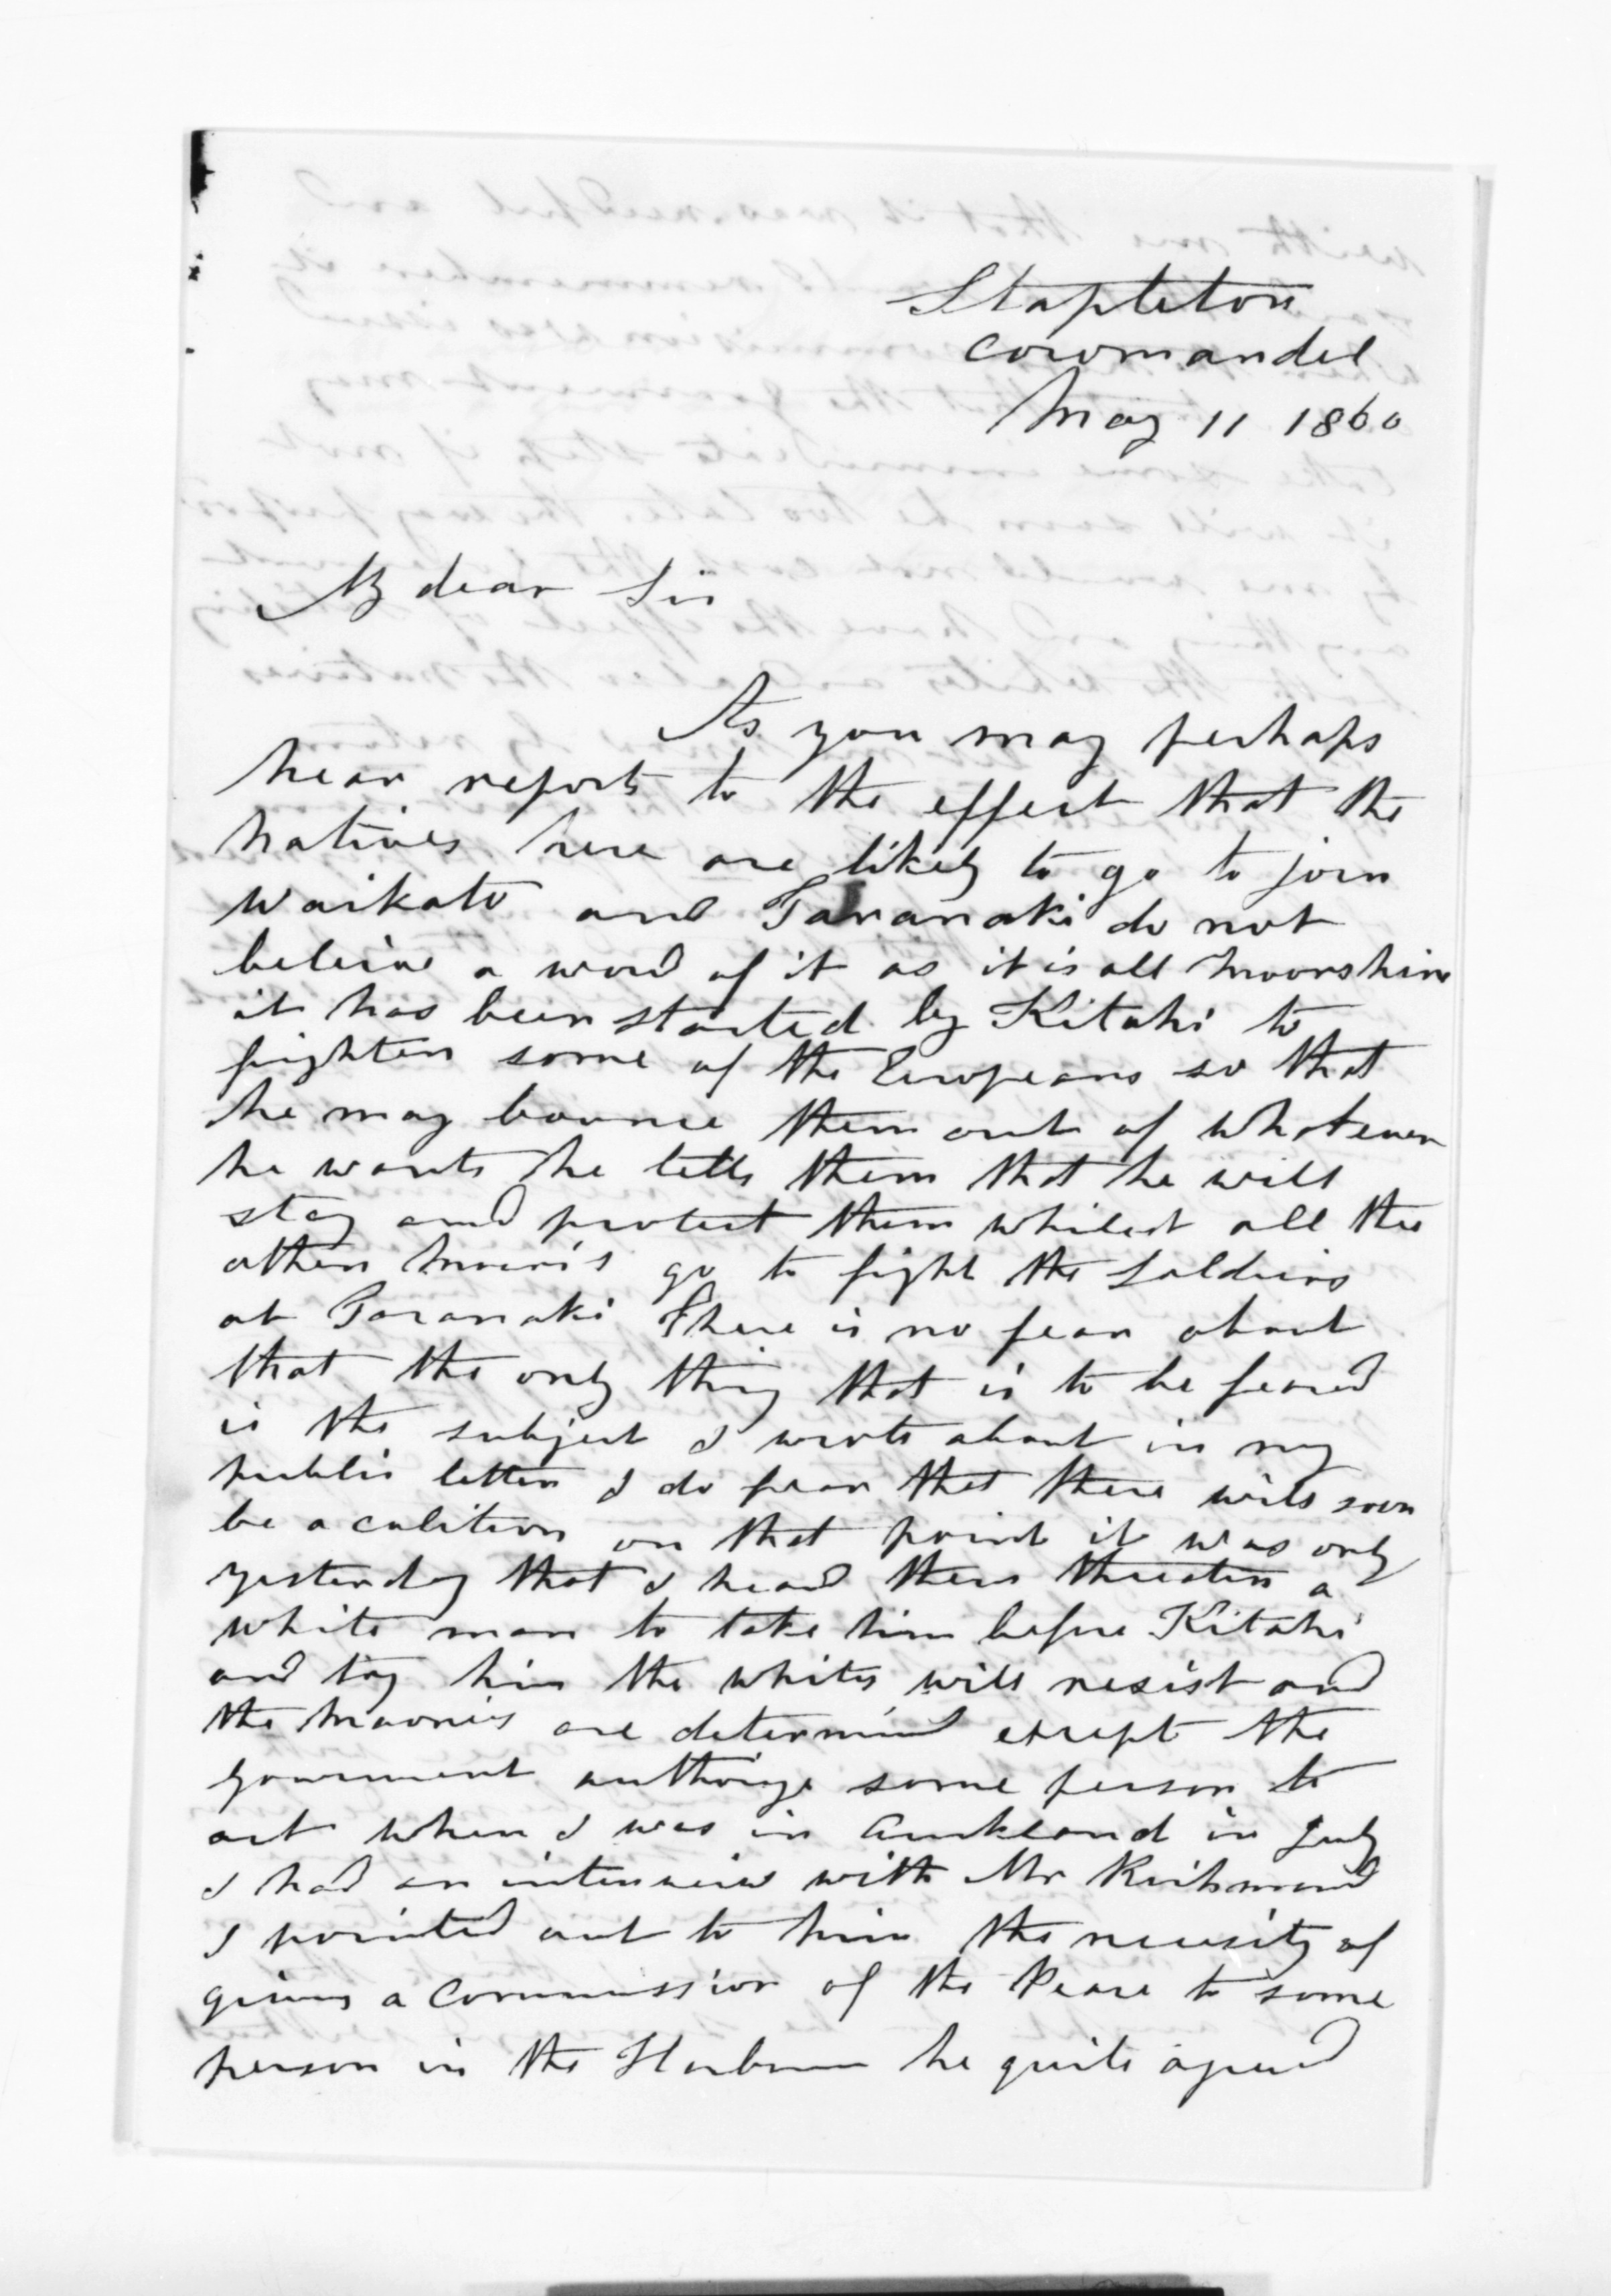 Stapleton
Coromandel
May 11 1860
My dear Sir
As you may perhaps
hear reports to the effect that the
natives here are likely to go to join
Waikato and Taranaki do not
beleive a word of it as it is all moonshine
it has been started by Kitahi to
frighten some of the Europeans so that
he may bounce them out of whatever
he wants he tells them that he will
stay and protect them whilest all the
other Maoris go to fight the Soldiers
at Taranaki There is no fear about
that the only thing that is to be feared
is the subject I wrote about in my
public letter I do fear that there will soon
be a colition on that point it was only
yesterday that I heard them threaten a
white man to take him before Kitahi
and try him the whites will resist and
the Maories are determined except the
government authorize some person to
act when I was in Auckland in July
I had an interveiw with Mr Richmond
I pointed out to him the necessity of
giving a Commission of the Peace to some
person in the Harbour he quite agreed